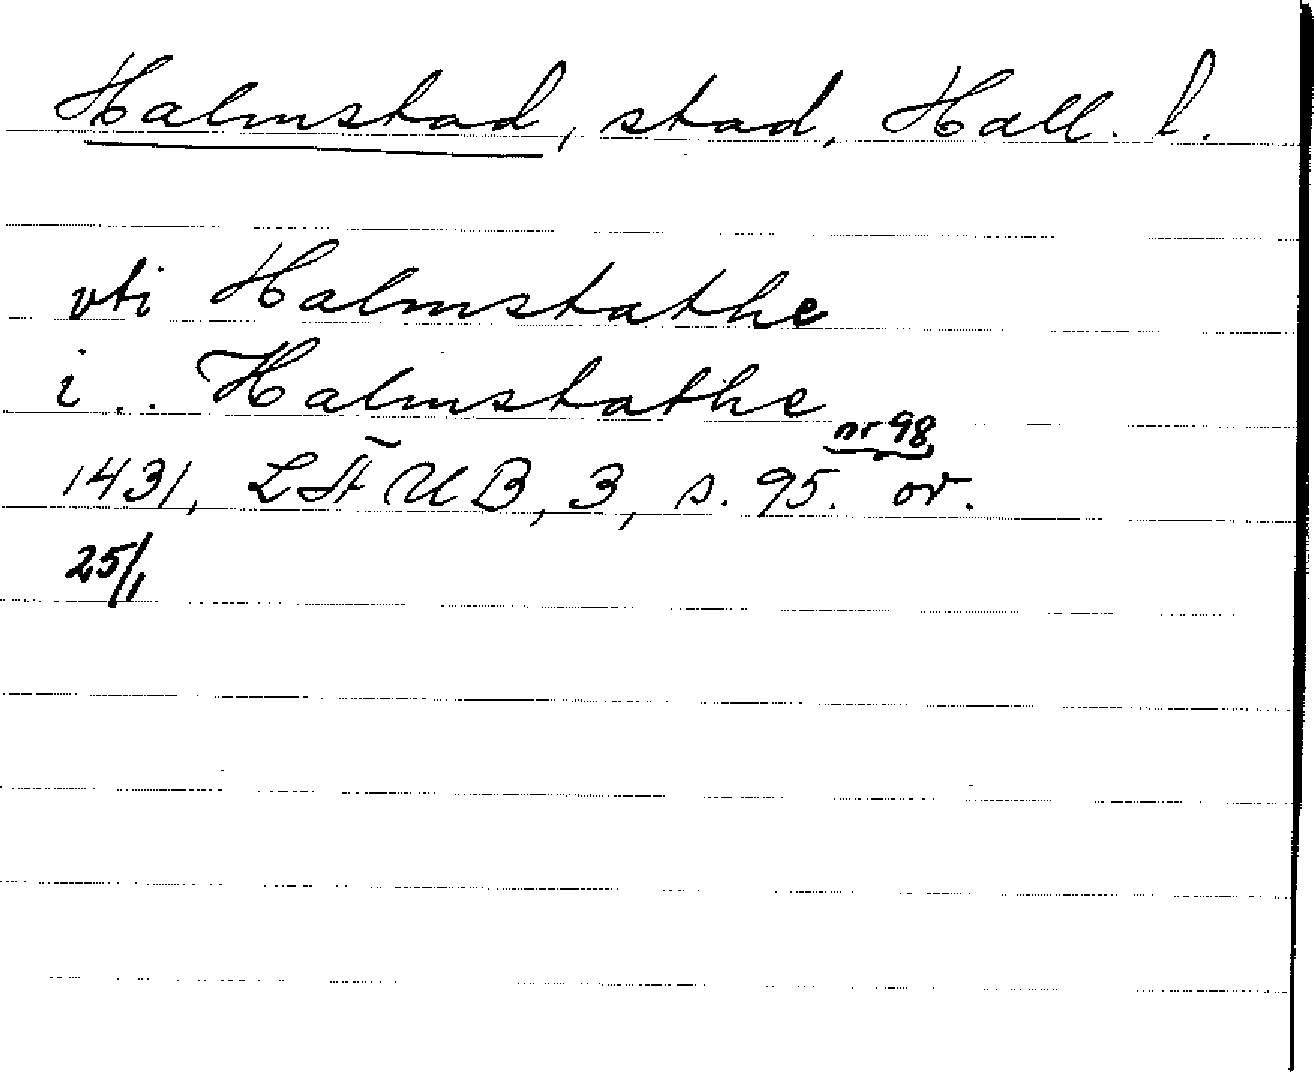 Halmstad, stad, Hall. l.
vti Halmstathe
i .. Halmstathe
nr 98
1431, LÄUB, 3, s. 95. or.
25/1